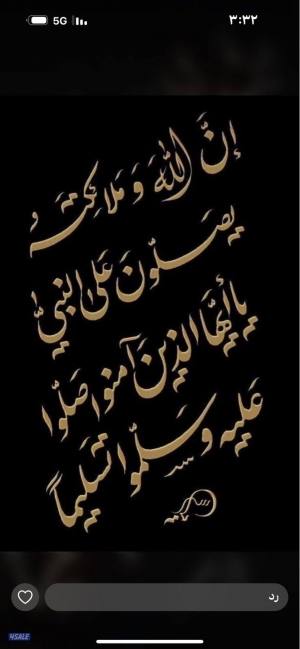 5G ٣:٣٢
إنَّ اللهَ وَمَلائكتَهُ
يصَلّونَ عَلى النبيِّ
يا أيّهَا الذينَ آمنوا صَلّوا
عَليهِ وسَلّموا تَسْليماً
رد
4SALE